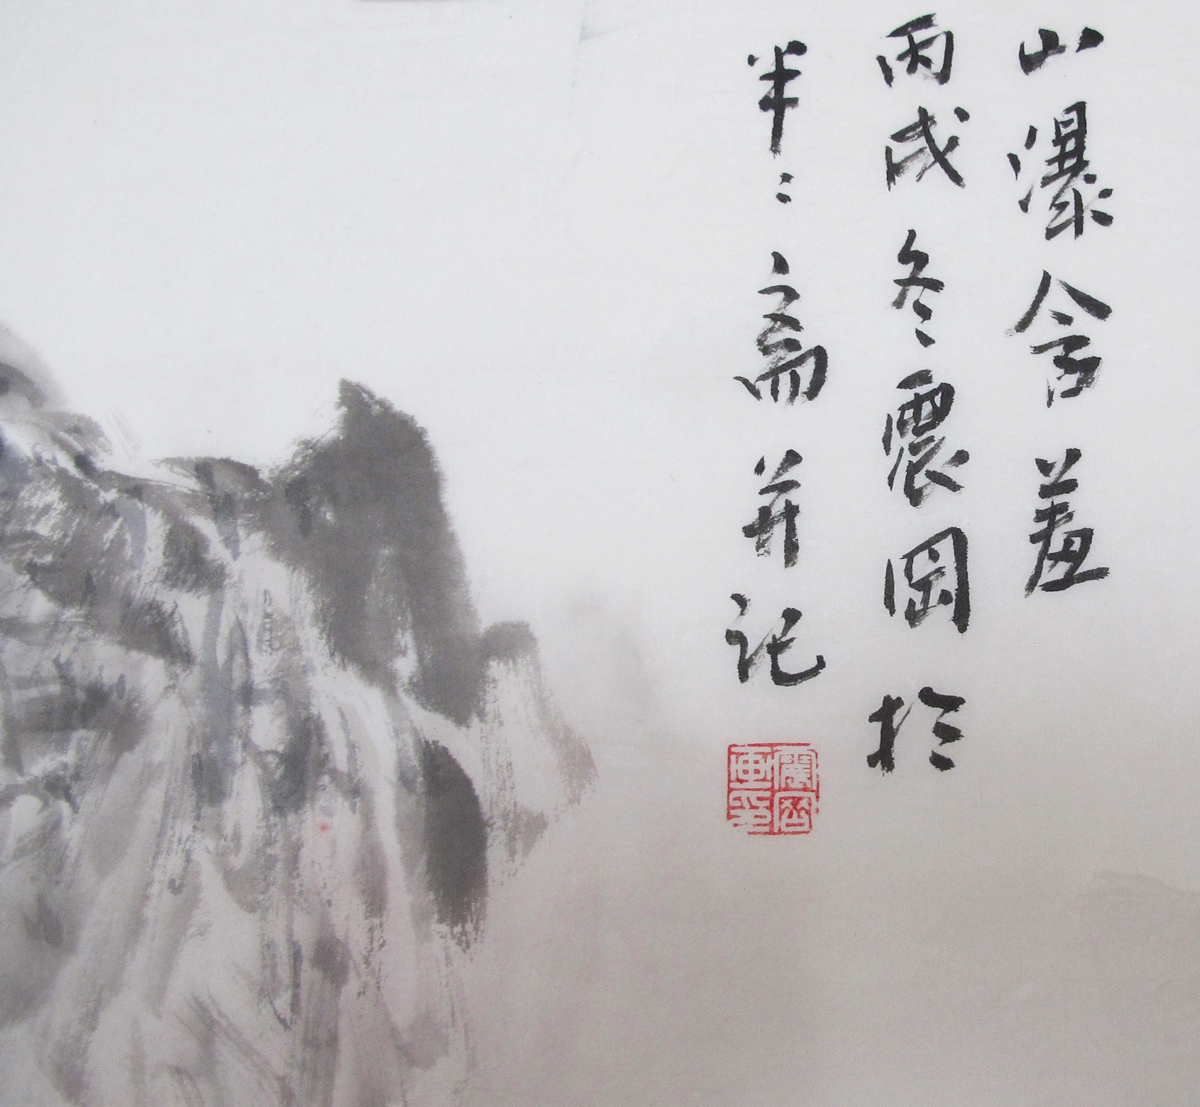 山瀑含羞
丙戌冬震岡於
半:斋并记